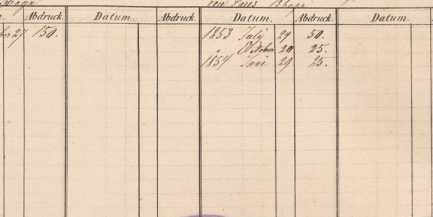 Abdruck. Datum. Abdruck. Datum. Abdruck. Datum.
27 150. 1853 July 29 50.
" October 20 25.
1857 Juni 29 25.